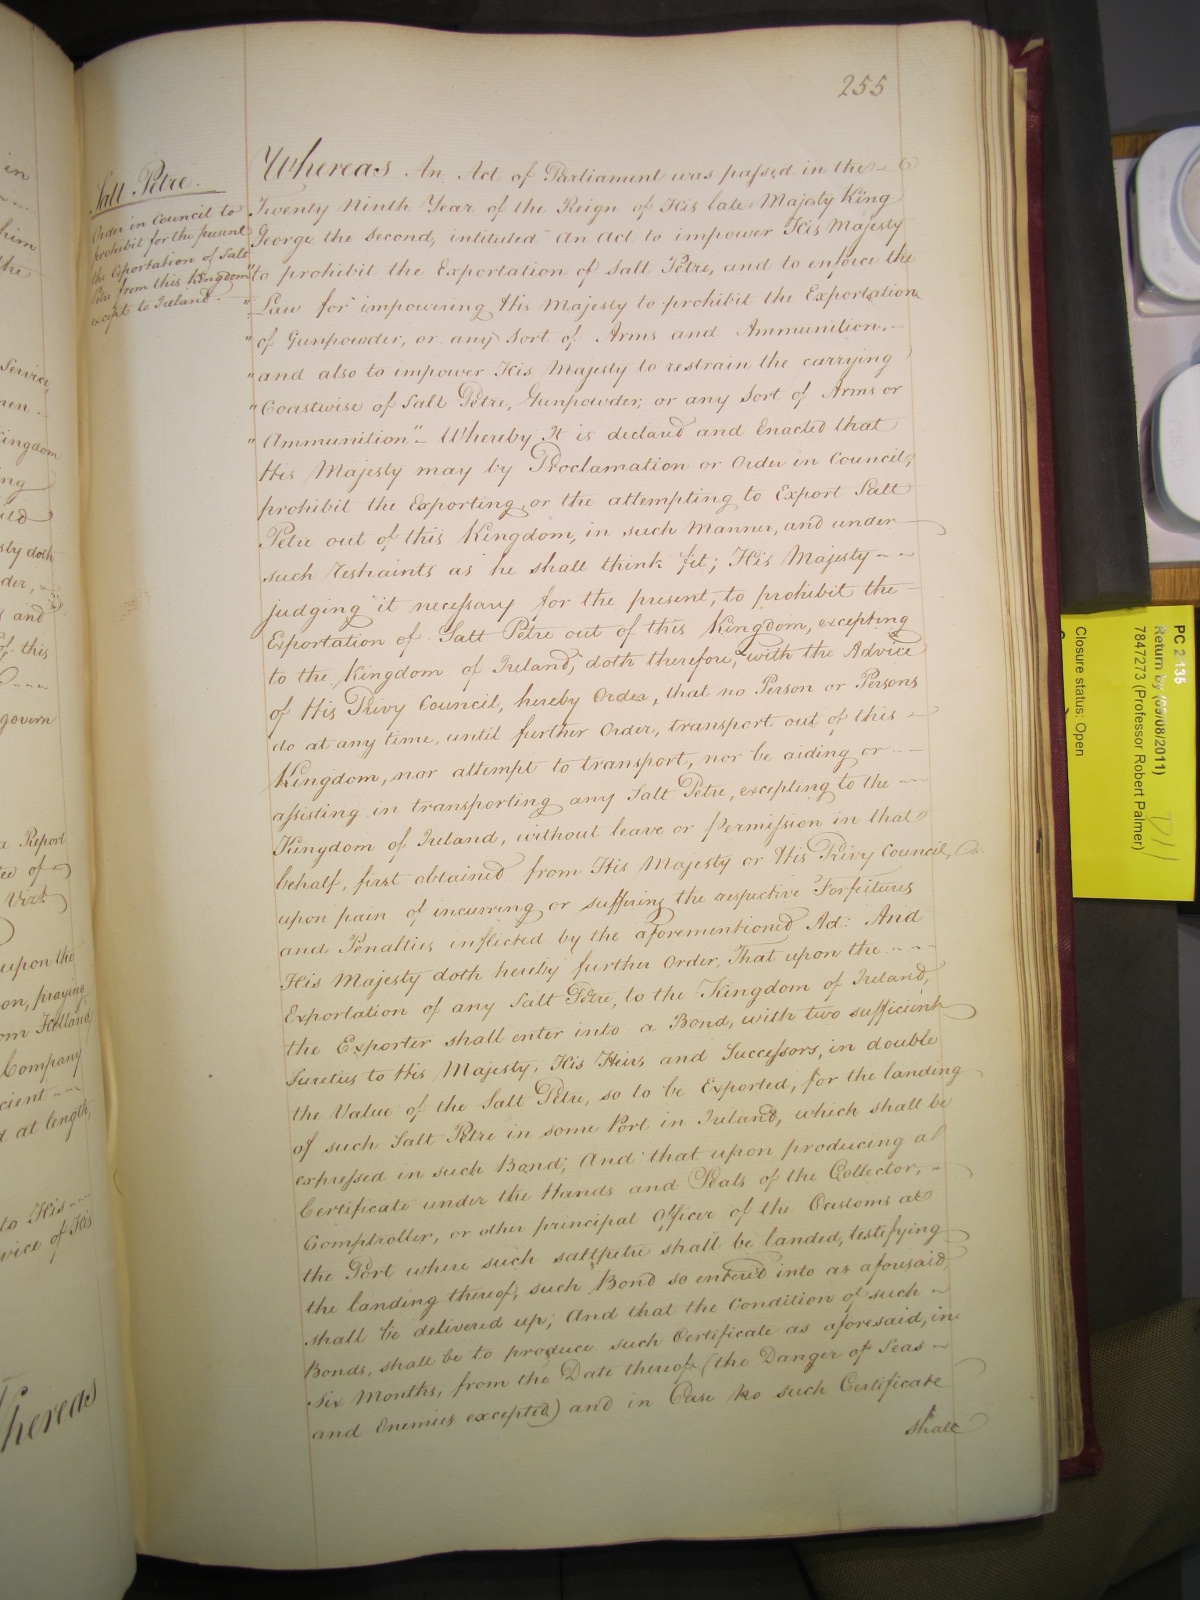 255
Salt Petre.
Order in Council to
prohibit for the present
the Exportation of Salt
Petre from this Kingdom
except to Ireland.
Whereas An Act of Parliament was passed in the
Twenty Ninth Year of the Reign of His late Majesty King
George the Second, intituled "An Act to impower His Majesty
"to prohibit the Exportation of Salt Petre, and to enforce the
"Law for impowering His Majesty to prohibit the Exportation
"of Gunpowder, or any Sort of Arms and Ammunition,
"and also to impower His Majesty to restrain the carrying
"Coastwise of Salt Petre, Gunpowder, or any Sort of Arms or
"Ammunition" Whereby It is declared and Enacted that
His Majesty may by Proclamation or Order in Council,
prohibit the Exporting, or the attempting to Export Salt
Petre out of this Kingdom, in such Manner, and under
such restraints as he shall think fit; His Majesty
judging it necessary for the present, to prohibit the
Exportation of Salt Petre out of this Kingdom, excepting
to the Kingdom of Ireland, doth therefore, with the Advice
of His Privy Council, hereby Order, that no Person or Persons
do at any time, until further Order, transport out of this
Kingdom, nor attempt to transport, nor be aiding or
assisting in transporting any Salt Petre, excepting to the
Kingdom of Ireland, without leave or Permission in that
behalf, first obtained from His Majesty or His Privy Council,
upon pain of incurring or suffering the respective Forfeitures
and Penalties inflicted by the aforementioned Act: And
His Majesty doth hereby further Order, That upon the
Exportation of any Salt Petre, to the Kingdom of Ireland,
the Exporter shall enter into a Bond, with two sufficient
Sureties to His Majesty, His Heirs and Successors, in double
the Value of the Salt Petre, so to be Exported, for the landing
of such Salt Petre in some Port in Ireland, which shall be
expressed in such Bond; And that upon producing a
Certificate under the Hands and Seals of the Collector,
Comptroller, or other principal Officer of the Customs at
the Port where such saltpetre shall be landed, testifying
the landing thereof, such Bond so entered into as aforesaid,
shall be delivered up; And that the Condition of such
Bonds, shall be to produce such Certificate as aforesaid, in
Six Months, from the Date thereof (the Danger of Seas
and Enemies excepted) and in Case no such Certificate
shall
in
him
the
Service,
Kingdom
ing
sty doth
der,
s and
of this
govern
a Report
Vizt.
upon the
on, praying
om Holland
Company
cient
at length,
to His
vice of His
Whereas
PC 2 135
Return by (09/08/2011)
7847273 (Professor Robert Palmer)
Closure status: Open